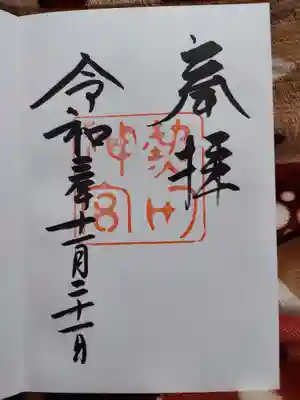 奉拝
熱田神宮
令和三年十一月二十一日